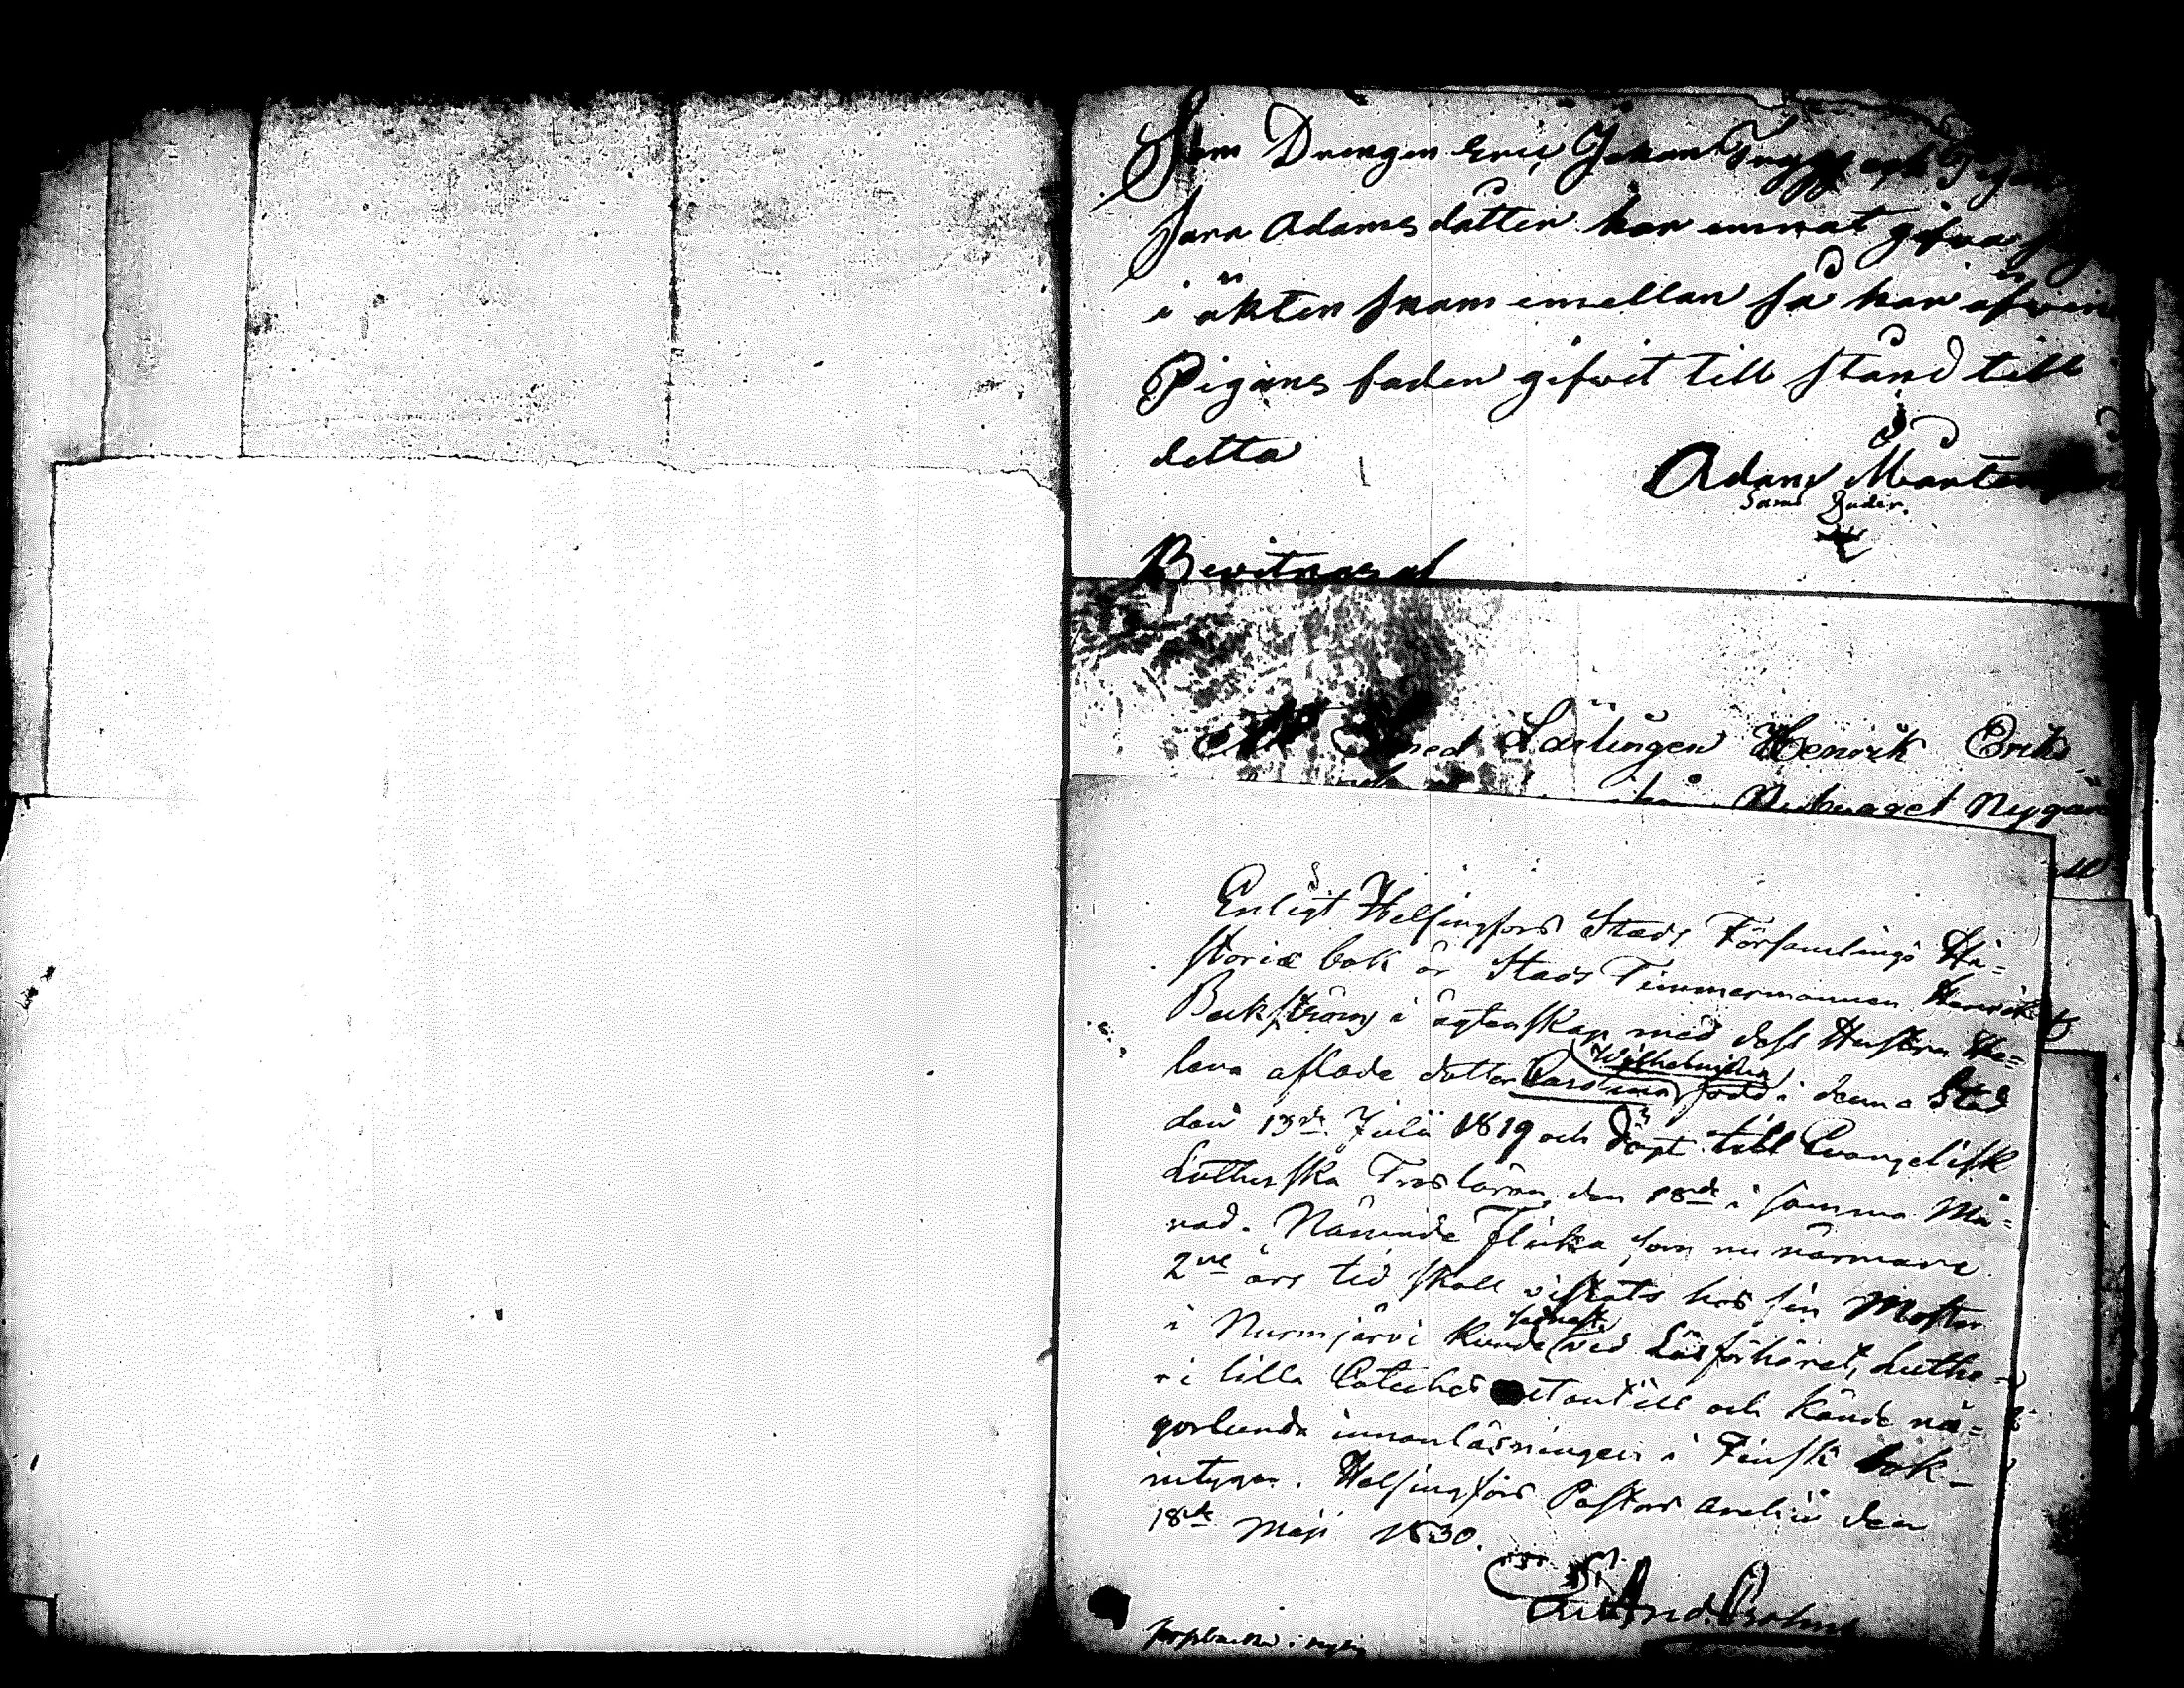 Som Drengen Eric Johan Trygg och Pigan
Sara Adamsdotter har ernnat gifva sig
i äkten skam emellan så har äfven
Pigans fader gifvit till stånd till
detta
Adam Mårtensson
Saras Fader.
Bevitnas af
med Lärlingen Henrik Eriks
Nybygget Nygård
Enligt Helsingfors Stads Församlings Hi=
storiæ bok är Stads Timmermannen Henrik
Bekström i ägtenskap med dess Hustru He=
lena aflade dotter Carolina Wilhelmina född i denna Stad
den 13de Julii 1819 och döpt till Evangelisk
Lutherska Trosläran den 18de i samma Må=
nad. Nämnde Flicka som nu närmare
2ne års tid skall vistats hos sin Moster
i Nurmjärvi kunde senast vid Läsförhöret, Luthe=
ri lilla Cateches utantill och kände nå=
gorlunda innanläsningen i Finsk bok
intygar. Helsingfors Pastors Embete den
18de Maji 1830.